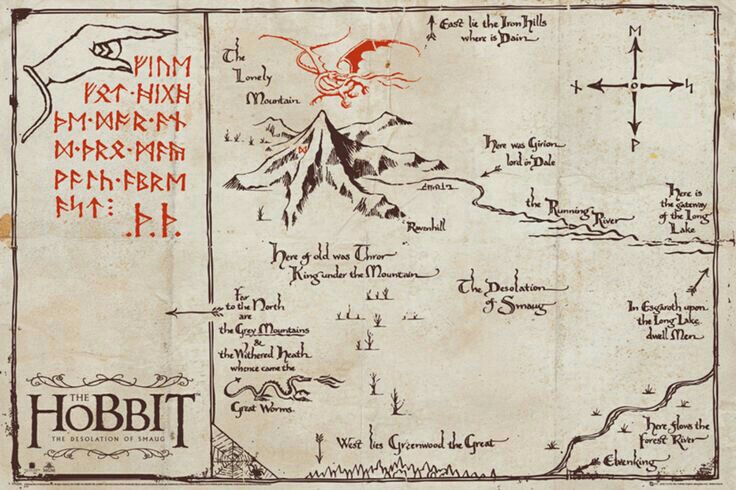 ᚠᛁᚢᛖ
ᚠᛟᛏ·ᚻᛁᚷᚻ
ᚦᛖ·ᛞᚩᚱ·ᚪᚾ
ᛞ·ᚦᚱᛟ·ᛗᚪᚣ
ᚹᚪᛚᚳ·ᚪᛒᚱᛖ
ᚪᛋᛏ⁝
.ᚦ.ᚦ.
East lie the Iron Hills
where is Dain
The
Lonely
Mountain
ᛞ
ᛖ
ᛋ
ᚹ
Here was Girion
lord in Dale
the Running
River
Here is
the gateway
of the Long
Lake
Ravenhill
Here of old was Thror
King under the Mountain
The Desolation
of Smaug
Far
to the North
are
the Grey Mountains
&
the Withered Heath
whence came the
Great Worms.
In Esgaroth upon
the Long Lake
dwell Men
West lies Greenwood the Great
Here flows the
Forest River
Elvenking
THE
HOBBIT
THE DESOLATION OF SMAUG